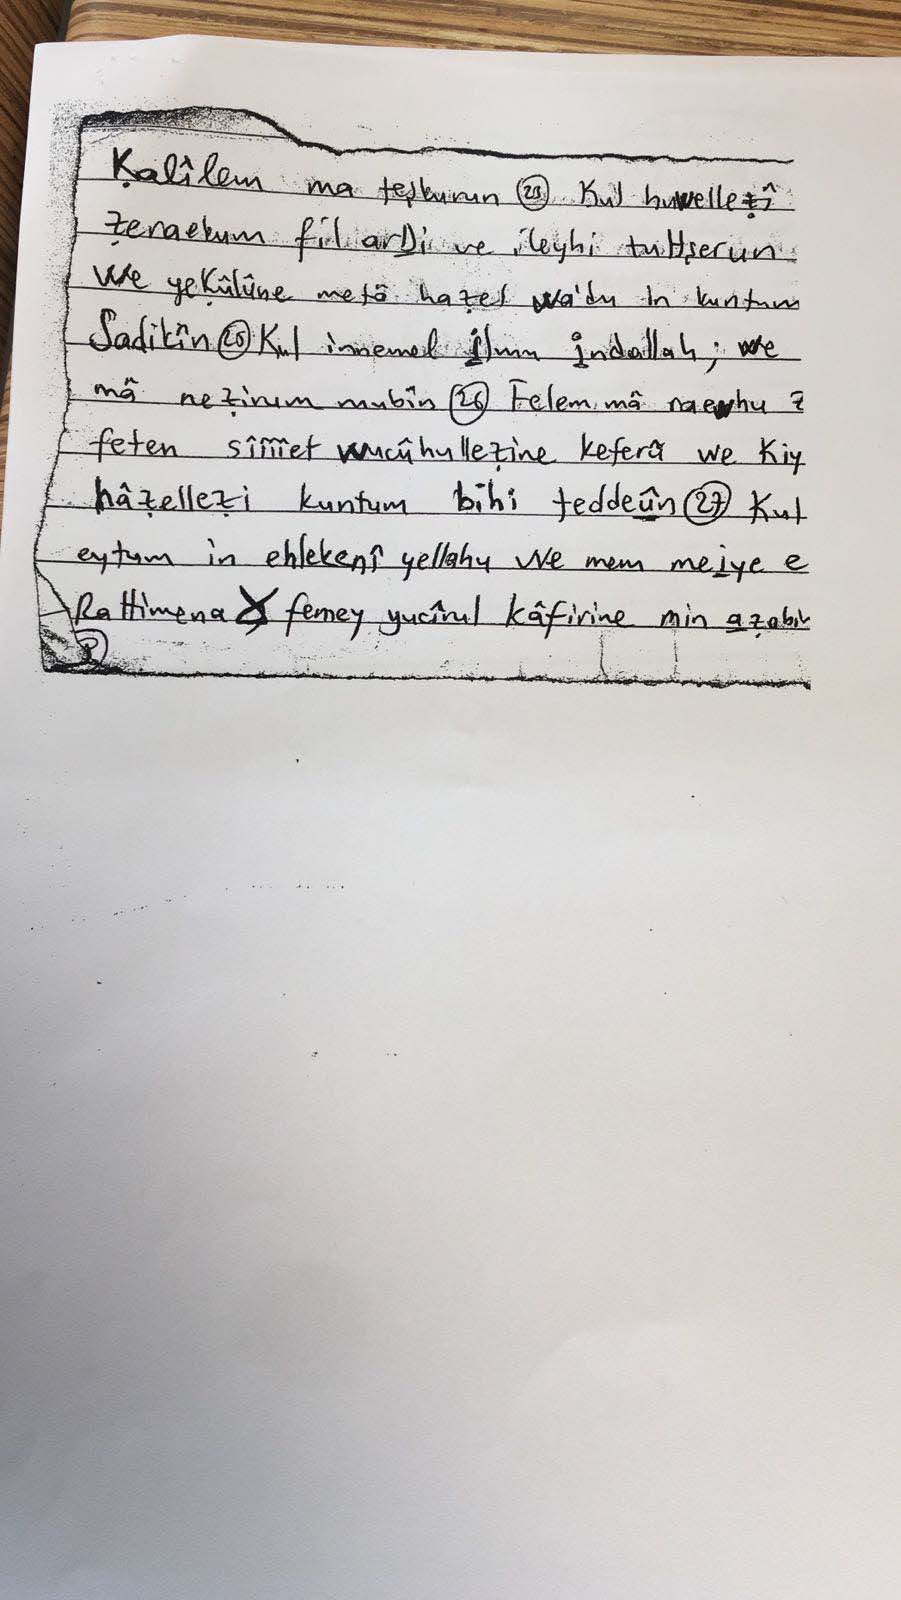 Ḳalîlem ma teşkurun (23) Kul huwelleẕî
ẕeraekum fil arDi ve ileyhi tuHşerun
We yeKûlûne metâ haẕel wa'du in kuntum
Sadikîn (25) Kul innemel ilmu indallah; we
mâ neẕirum mubîn (26) Felem mâ raewhu z
feten sîîet wucûhulleẕine keferû we Kiy
hâẕelleẕi kuntum bihi teddeûn (27) Kul
eytum in ehlekenî yellahu We mem meiye e
RaHimena femey yucîrul kâfirine min aẕabil